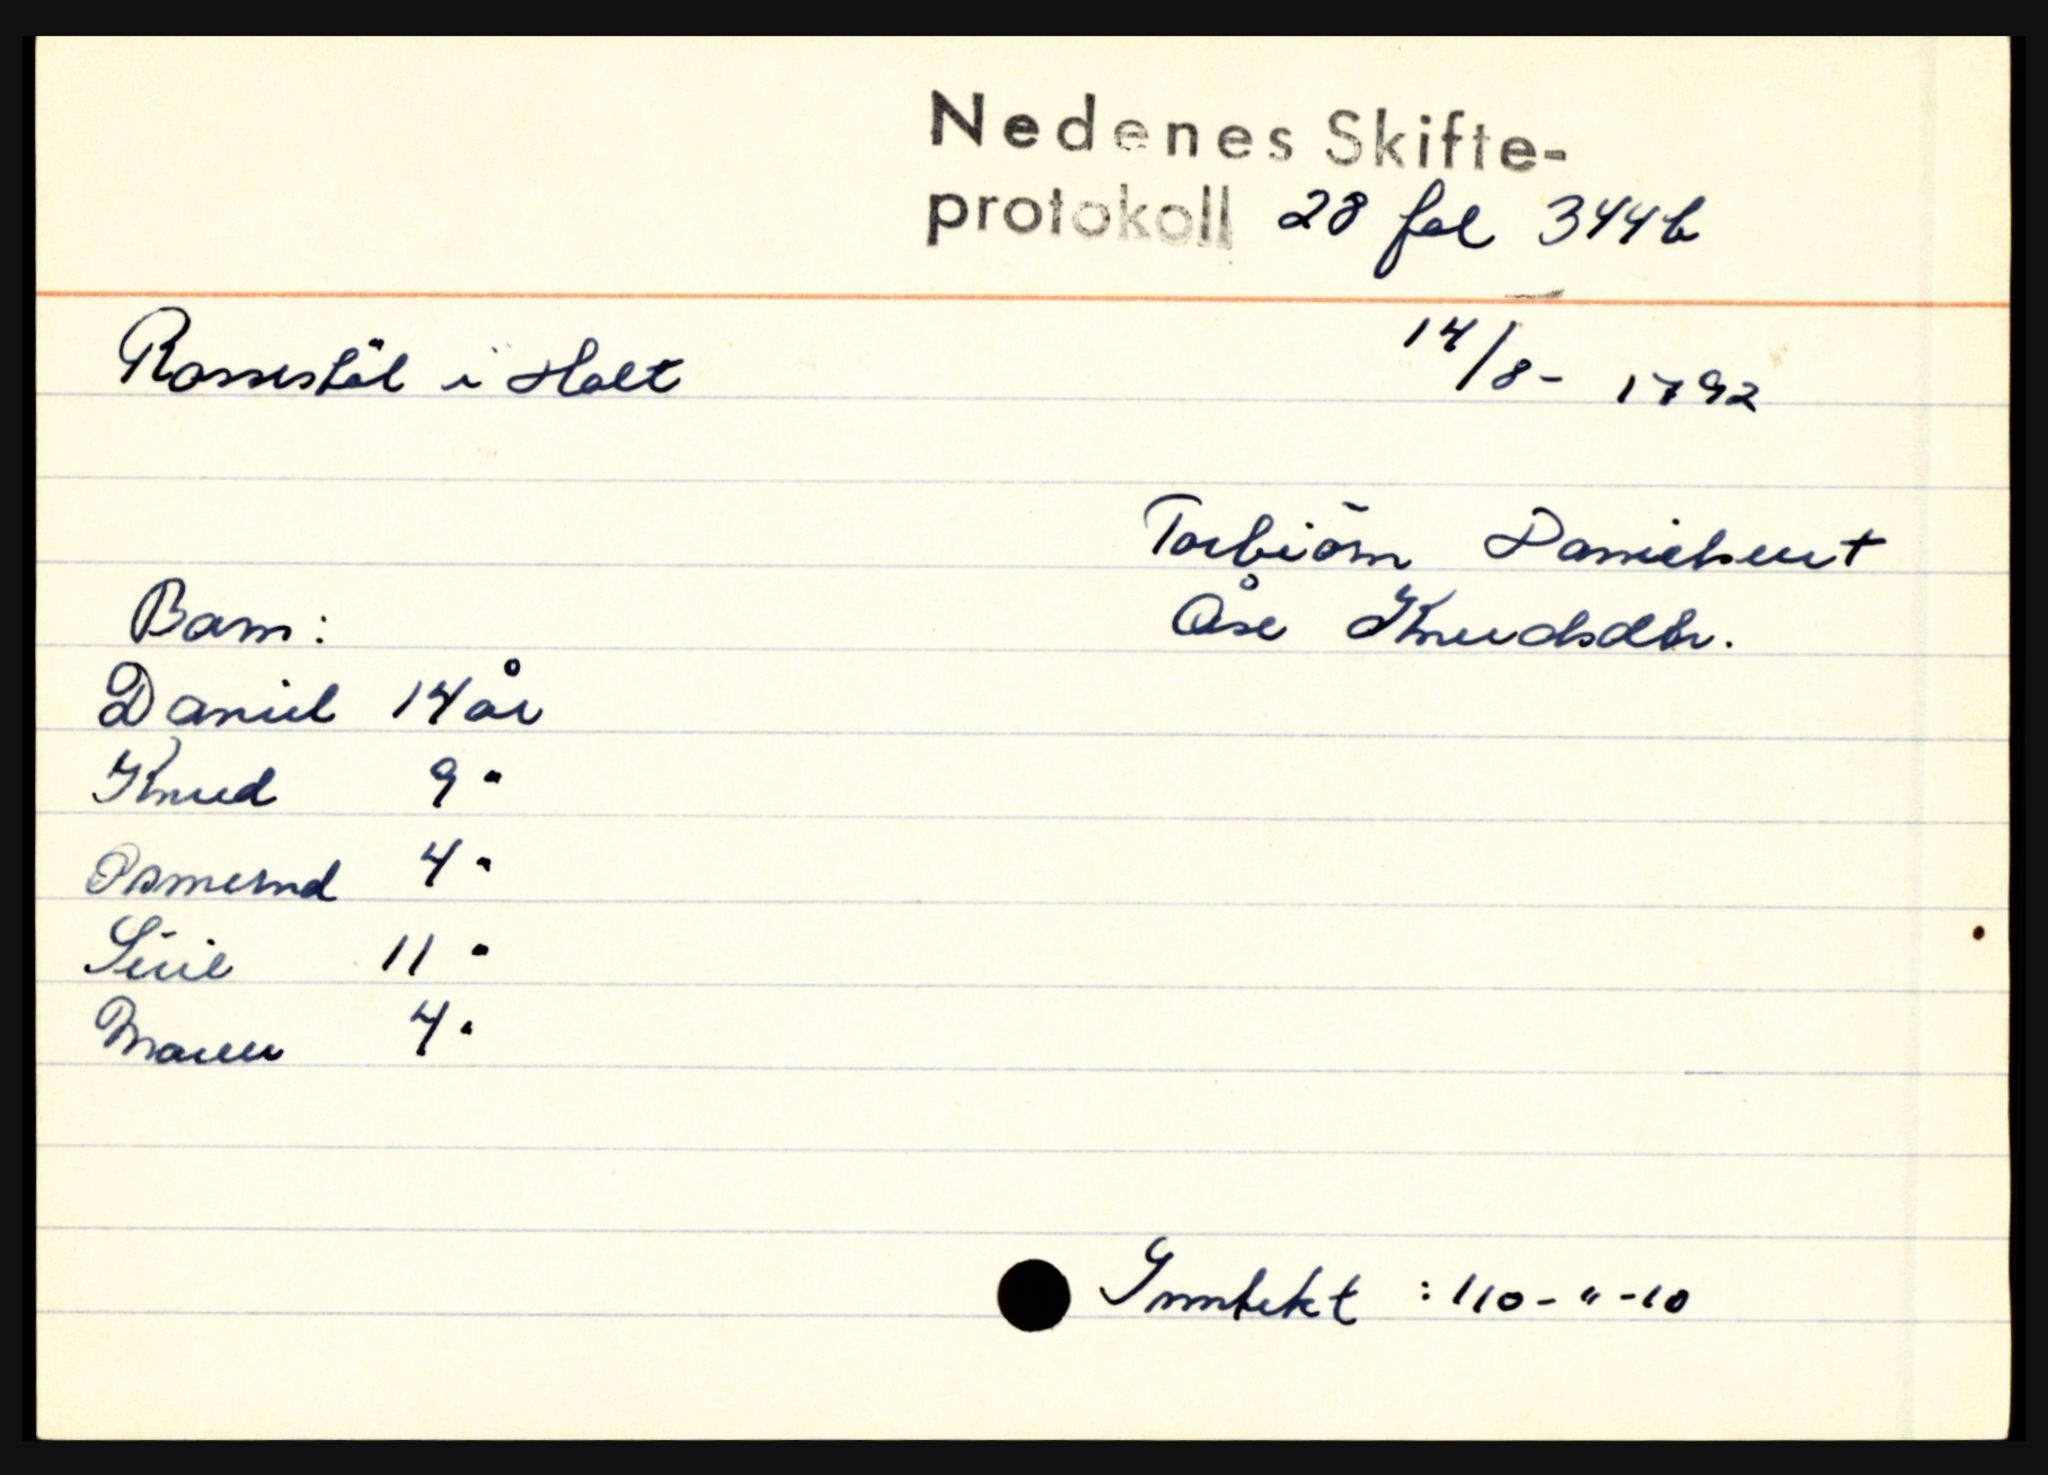 Nedenes Skifte-
protokoll 28 fol 344b
Rossestöl i Holt 14/8- 1792
Torbiörn Danielsen +
Barn: Åse Knudsdtr.
Daniel 14 år
Knud 9 "
Osmund 4 "
Siril 11 "
Maren 4 "
Inntekt : 110-"-10